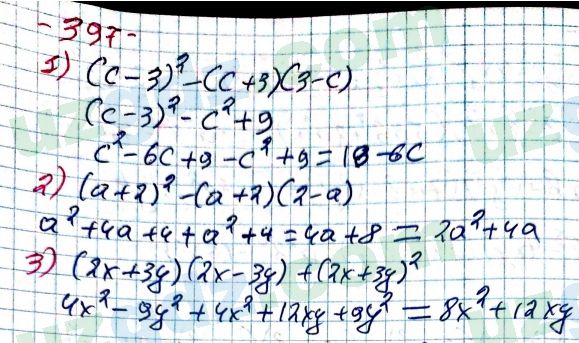 -397-
1) (c-3)²-(c+3)(3-c)
(c-3)²-c²+9
c²-6c+9-c²+9=18-6c
2) (a+2)²-(a+2)(2-a)
a²+4a+4+a²+4=4a+8=2a²+4a
3) (2x+3y)(2x-3y)+(2x+3y)²
4x²-9y²+4x²+12xy+9y²=8x²+12xy